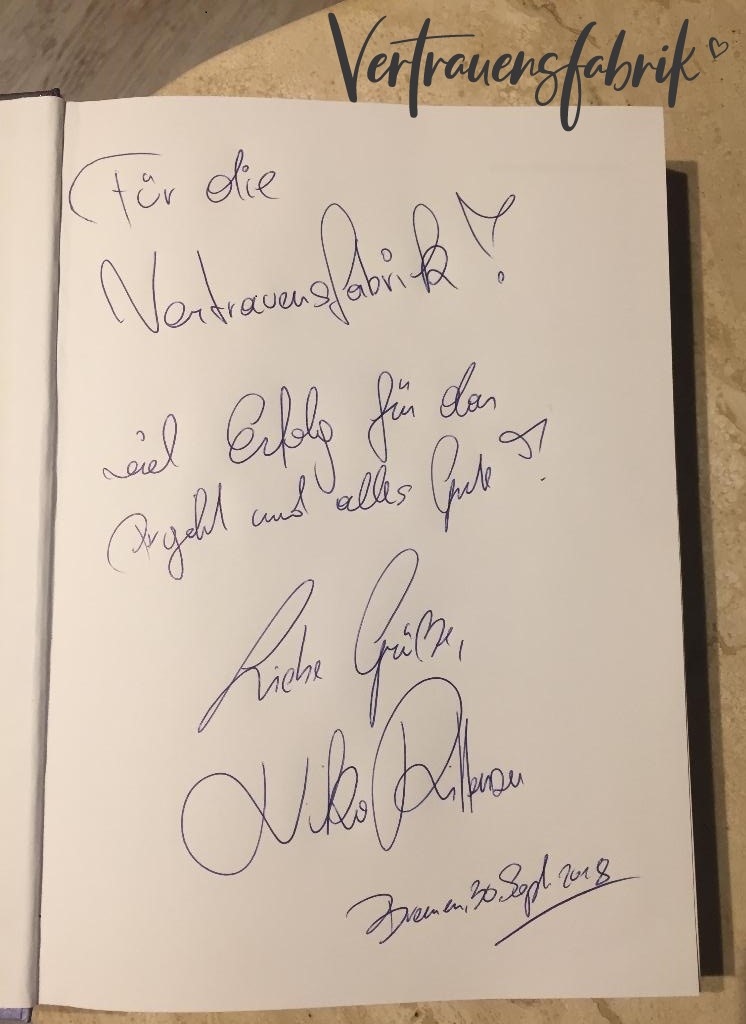 Vertrauensfabrik
Für die
Vertrauensfabrik!
viel Erfolg für das
Projekt und alles Gute!
Liebe Grüße,
Niko Rittenau
Bremen, 30. Sept. 2018